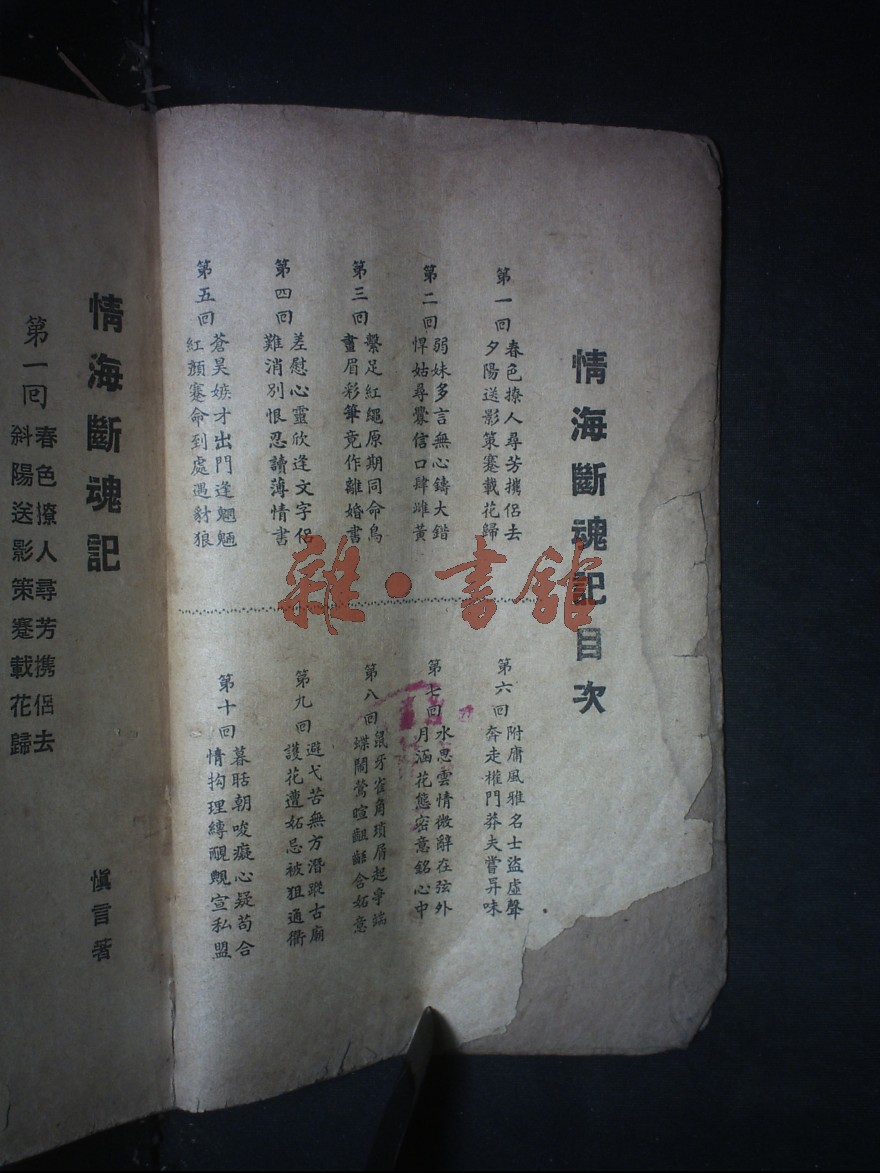 情海斷魂記目次
第一回
春色撩人尋芳攜侶去
夕陽送影策蹇載花歸
第二回
弱妹多言無心鑄大錯
悍姑尋釁信口肆雌黃
第三回
繫足紅繩原期同命鳥
畫眉彩筆竟作離婚書
第四回
差慰心靈欣逢文字侶
難消別恨忍讀薄情書
第五回
蒼昊嫉才出門逢魍魎
紅顏蹇命到處遇豺狼
第六回
附庸風雅名士盜虛聲
奔走權門莽夫嘗異味
第七回
水思雲情微辭在弦外
月涵花態密意銘心中
第八回
鼠牙雀角瑣屑起爭端
蝶鬧鶯喧齟齬含妬意
第九回
避弋苦無方潛蹤古廟
護花遭妬忌被狙通衢
第十回
暮聒朝唆癡心疑苟合
情拘理縛靦覥宣私盟
情海斷魂記
慎言著
第一回
春色撩人尋芳携侶去
斜陽送影策蹇載花歸
雜·書館